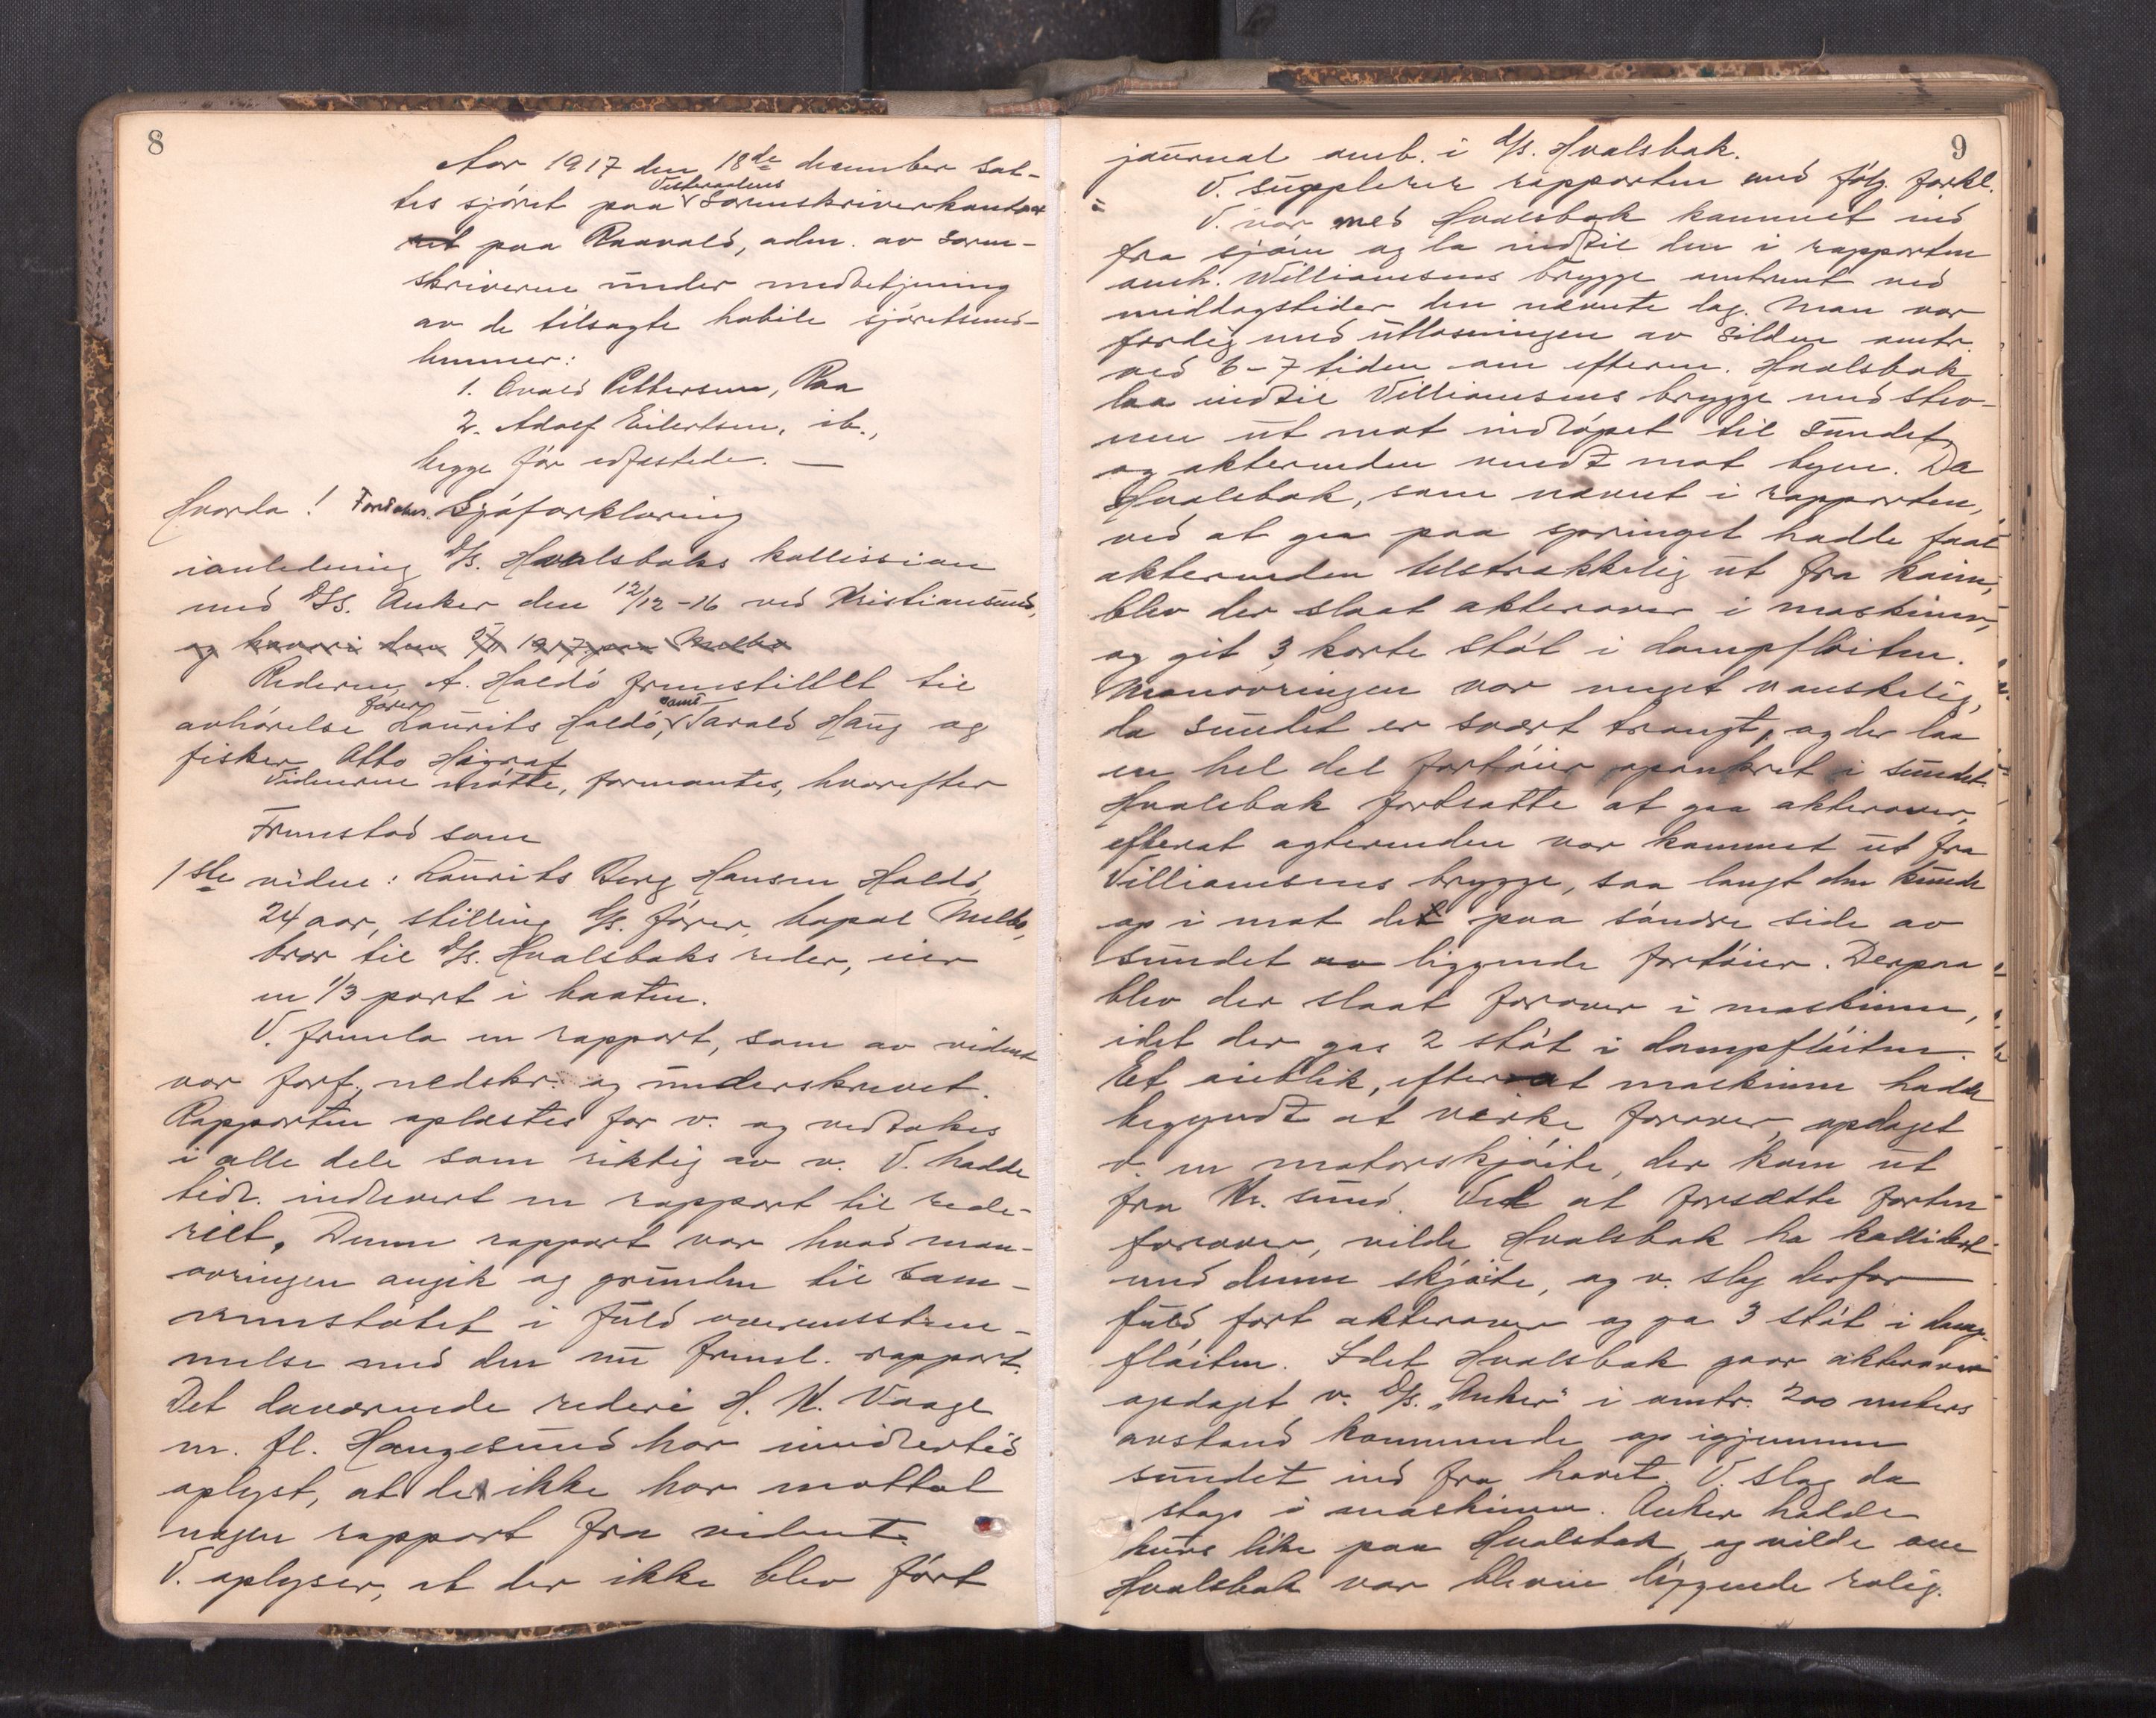 8
Aar 1917 den 18de december sat-
tes sjöret paa Vesteraalens Sorenskriverkontor
ret paa Raavald, adm. av soren-
skriveren under medbetjening
av de tilsagte habile sjöretsmed-
lemmer:
1. Evald Pettersen, Raa
2. Adolf Eilertsen, ib.,
begge før edfæstede. —
Hvorda! Foretokes Sjøforklaring
ianledning D/s. Hvalsbaks kollission
med D/s. Anker den 12/12-16 ved Kristiansund,
og havari den 5/1 1917 paa Melbo
Rederen, A. Haldö fremstillet til
avhörelse fører Laurits Haldö, samt Tarald Haug og
fisker Otto Hågraf
Vidnerne mötte, formantes, hvorefter
Fremstod som
1ste vidne: Laurits Berg Hansen Haldö,
24 aar, stilling D/s. förer, bopæl Melbo,
bror til D/s. Hvalsbaks reder, eier
en 1/3 part i baaten.
V. fremla en rapport, som av vidnet
var forf., nedskr. og underskrevet.
Rapporten oplæstes for v. og vedtokes
i alle dele som riktig av v. V. hadde
tidl. indlevert en rapport til rede-
riet. Denne rapport var hvad man-
øvringen angik og grunden til sam-
menstötet i fuld overensstem-
melse med den nu freml. rapport.
Det daværende rederi H. M. Vaage
m. fl. Haugesund har imidlertid
oplyst, at de ikke har mottat
nogen rapport fra vidnet.
V. oplyser, at der ikke blev fört
9
journal omb. i D/s. Hvalsbak.
V. supplerer rapporten med følg. forkl.
V. var med Hvalsbak kommet ind
fra sjöen og la indtil den i rapporten
omh. Williamsens brygge omtrent ved
middagstider den nævnte dag. Man var
færdig med utlosningen av silden omtr.
ved 6-7 tiden om efterm. Hvalsbak
laa indtil Villiamsens brygge med stev-
nen ut mot indlöpet til sundet,
og akterenden vendt mot byen. Da
Hvalsbak, som nævnt i rapporten,
ved at gaa paa springet hadde faat
akterenden tilstrækkelig ut fra kaien,
blev der slaat akterover i maskinen,
og git 3 korte stöt i dampflöiten.
Manövringen var meget vanskelig,
da sundet er svært trangt, og der laa
en hel del fartöier opankret i sundet.
Hvalsbak fortsatte at gaa akterover,
efterat agterenden var kommet ut fra
Villiamsens brygge, saa langt den kunde
op i mot det paa söndre side av
sundet liggende fartöier. Derpaa
blev der slaat forover i maskinen,
idet der gas 2 stöt i dampflöiten.
Et øieblik, efterat maskinen hadde
begyndt at virke forover, opdaget
v. en motorskjöite, der kom ut
fra Kr. sund. Ved at forsætte farten
forover, vilde Hvalsbak ha kollidert
med denne skjöite, og v. slog derfor
fuld fart akterover og ga 3 stöt i damp-
flöiten. Idet Hvalsbak gaar akterover
opdaget v. D/s. „Anker" i omtr. 200 meters
avstand kommende op igjennem
sundet ind fra havet. V. slog da
stop i maskinen. Anker hadde
kurs like paa Hvalsbak, og vilde om
Hvalsbak var blevne liggende rolig.